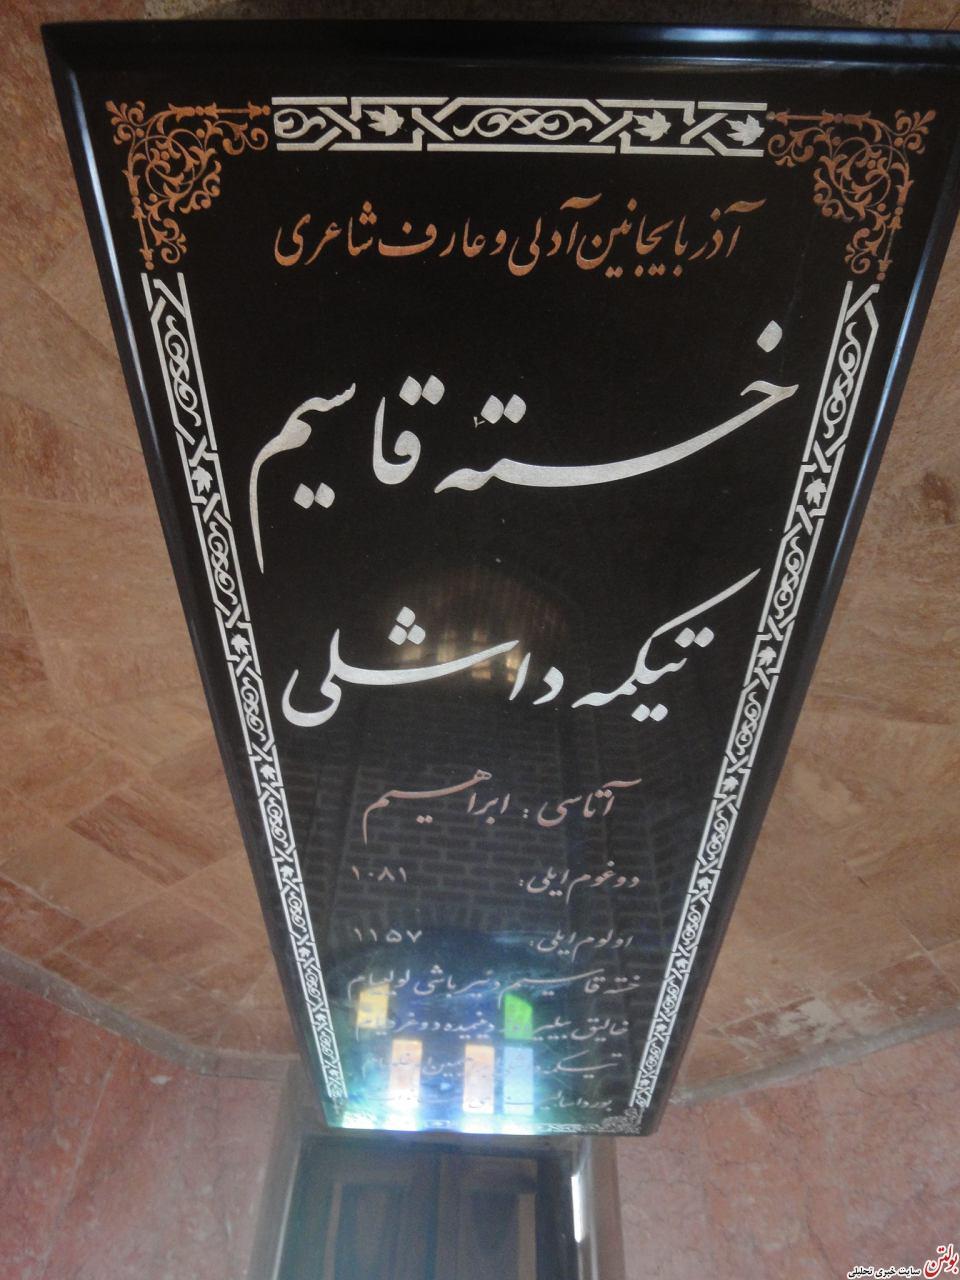 آذربایجانین آدلی و عارف شاعری
خسته قاسیم
تیکمه داشلی
آتاسی : ابراهیم
دوغوم ایلی: ۱۰۸۱
اولوم ایلی: ۱۱۵۷
خسته قاسیم دئیر باشی لولییام
خالیق بیلیر دینمیده دوغرییام
بولتن
سایت خبری تحلیلی